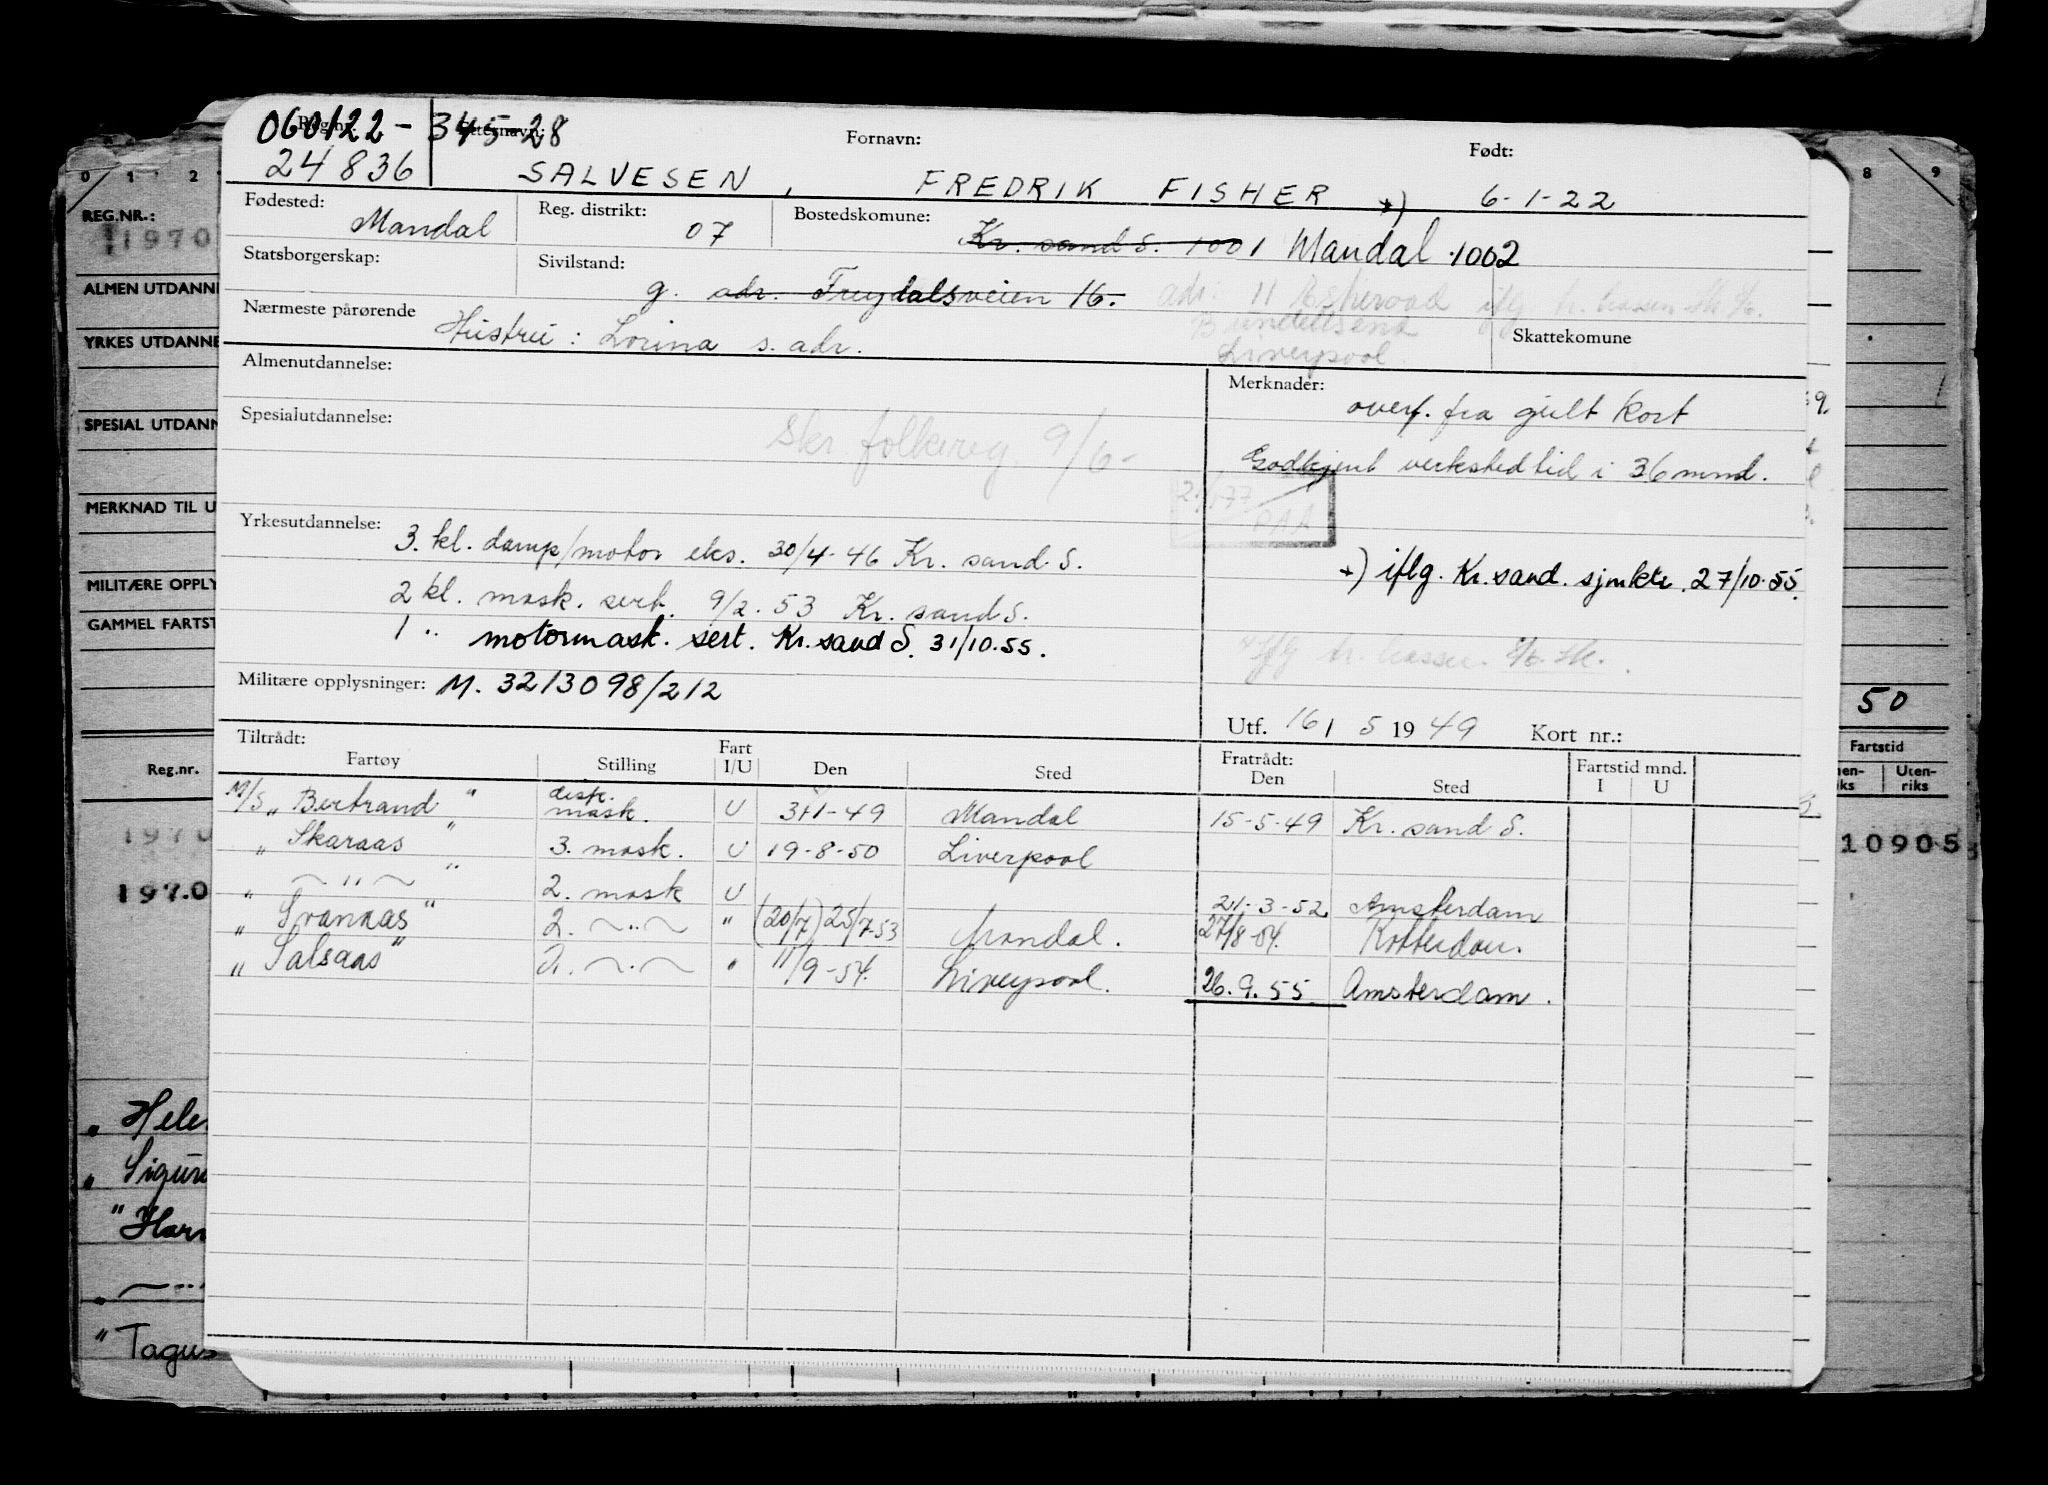 060122-34528
Reg.nr.: Etternavn: Fornavn: Født:
24836 SALVESEN, FREDRIK FISHER *) 6-1-22
Fødested: Mandal Reg. distrikt: 07 Bostedskomune: Kr. sand S. 1001 Mandal 1002
Statsborgerskap: Sivilstand: g. adr. Fruydalsveien 16. adr: 11
Nærmeste pårørende Hustru: Lorina s. adr. Liverpool Skattekomune
Almenutdannelse: Merknader:
overf. fra gult kort
Spesialutdannelse: Skr. folkereg. 9/6-
Godkjent verkstedtid i 36 mnd.
Yrkesutdannelse:
3. kl. damp/motor eks. 30/4-46 Kr. sand. S.
*) iflg. Kr. sand. sjmktr. 27/10-55.
2 kl. mask. sert. 9/2.53 Kr. sand S.
1 " motormask. sert. Kr. sand S. 31/10.55.
Militære opplysninger: M. 3213098/212
Utf. 16/ 5 1949 Kort nr.:
Tiltrådt: Fratrådt: Fartstid mnd.
Fartøy Stilling Fart I/U Den Sted Den Sted I U
M/S "Bertrand" disk. mask. U 31-1-49 Mandal 15-5-49 Kr. sand S.
" Skaraas " 3. mask. U 19-8-50 Liverpool
" ~ " ~ " 2. mask U 21-3-52 Amsterdam
" Svanaas" 2. ~ " ~ " (20/7) 25/7-53 Mandal. 27/8-54. Rotterdam.
" Salsaas" 2. ~ " ~ " 11/9-54. Liverpool. 26.9.55 Amsterdam.
0 1 2 8 9
REG.NR.:
1970
ALMEN UTDANNE
YRKES UTDANNE
SPESIAL UTDANN
MERKNAD TIL U
MILITÆRE OPPLY
GAMMEL FARTST
50
Fartstid
Reg.nr.
Uten-
riks
1970
10905
1970
" Hele
" Sigur
" Har
" ~ "
" Tagus